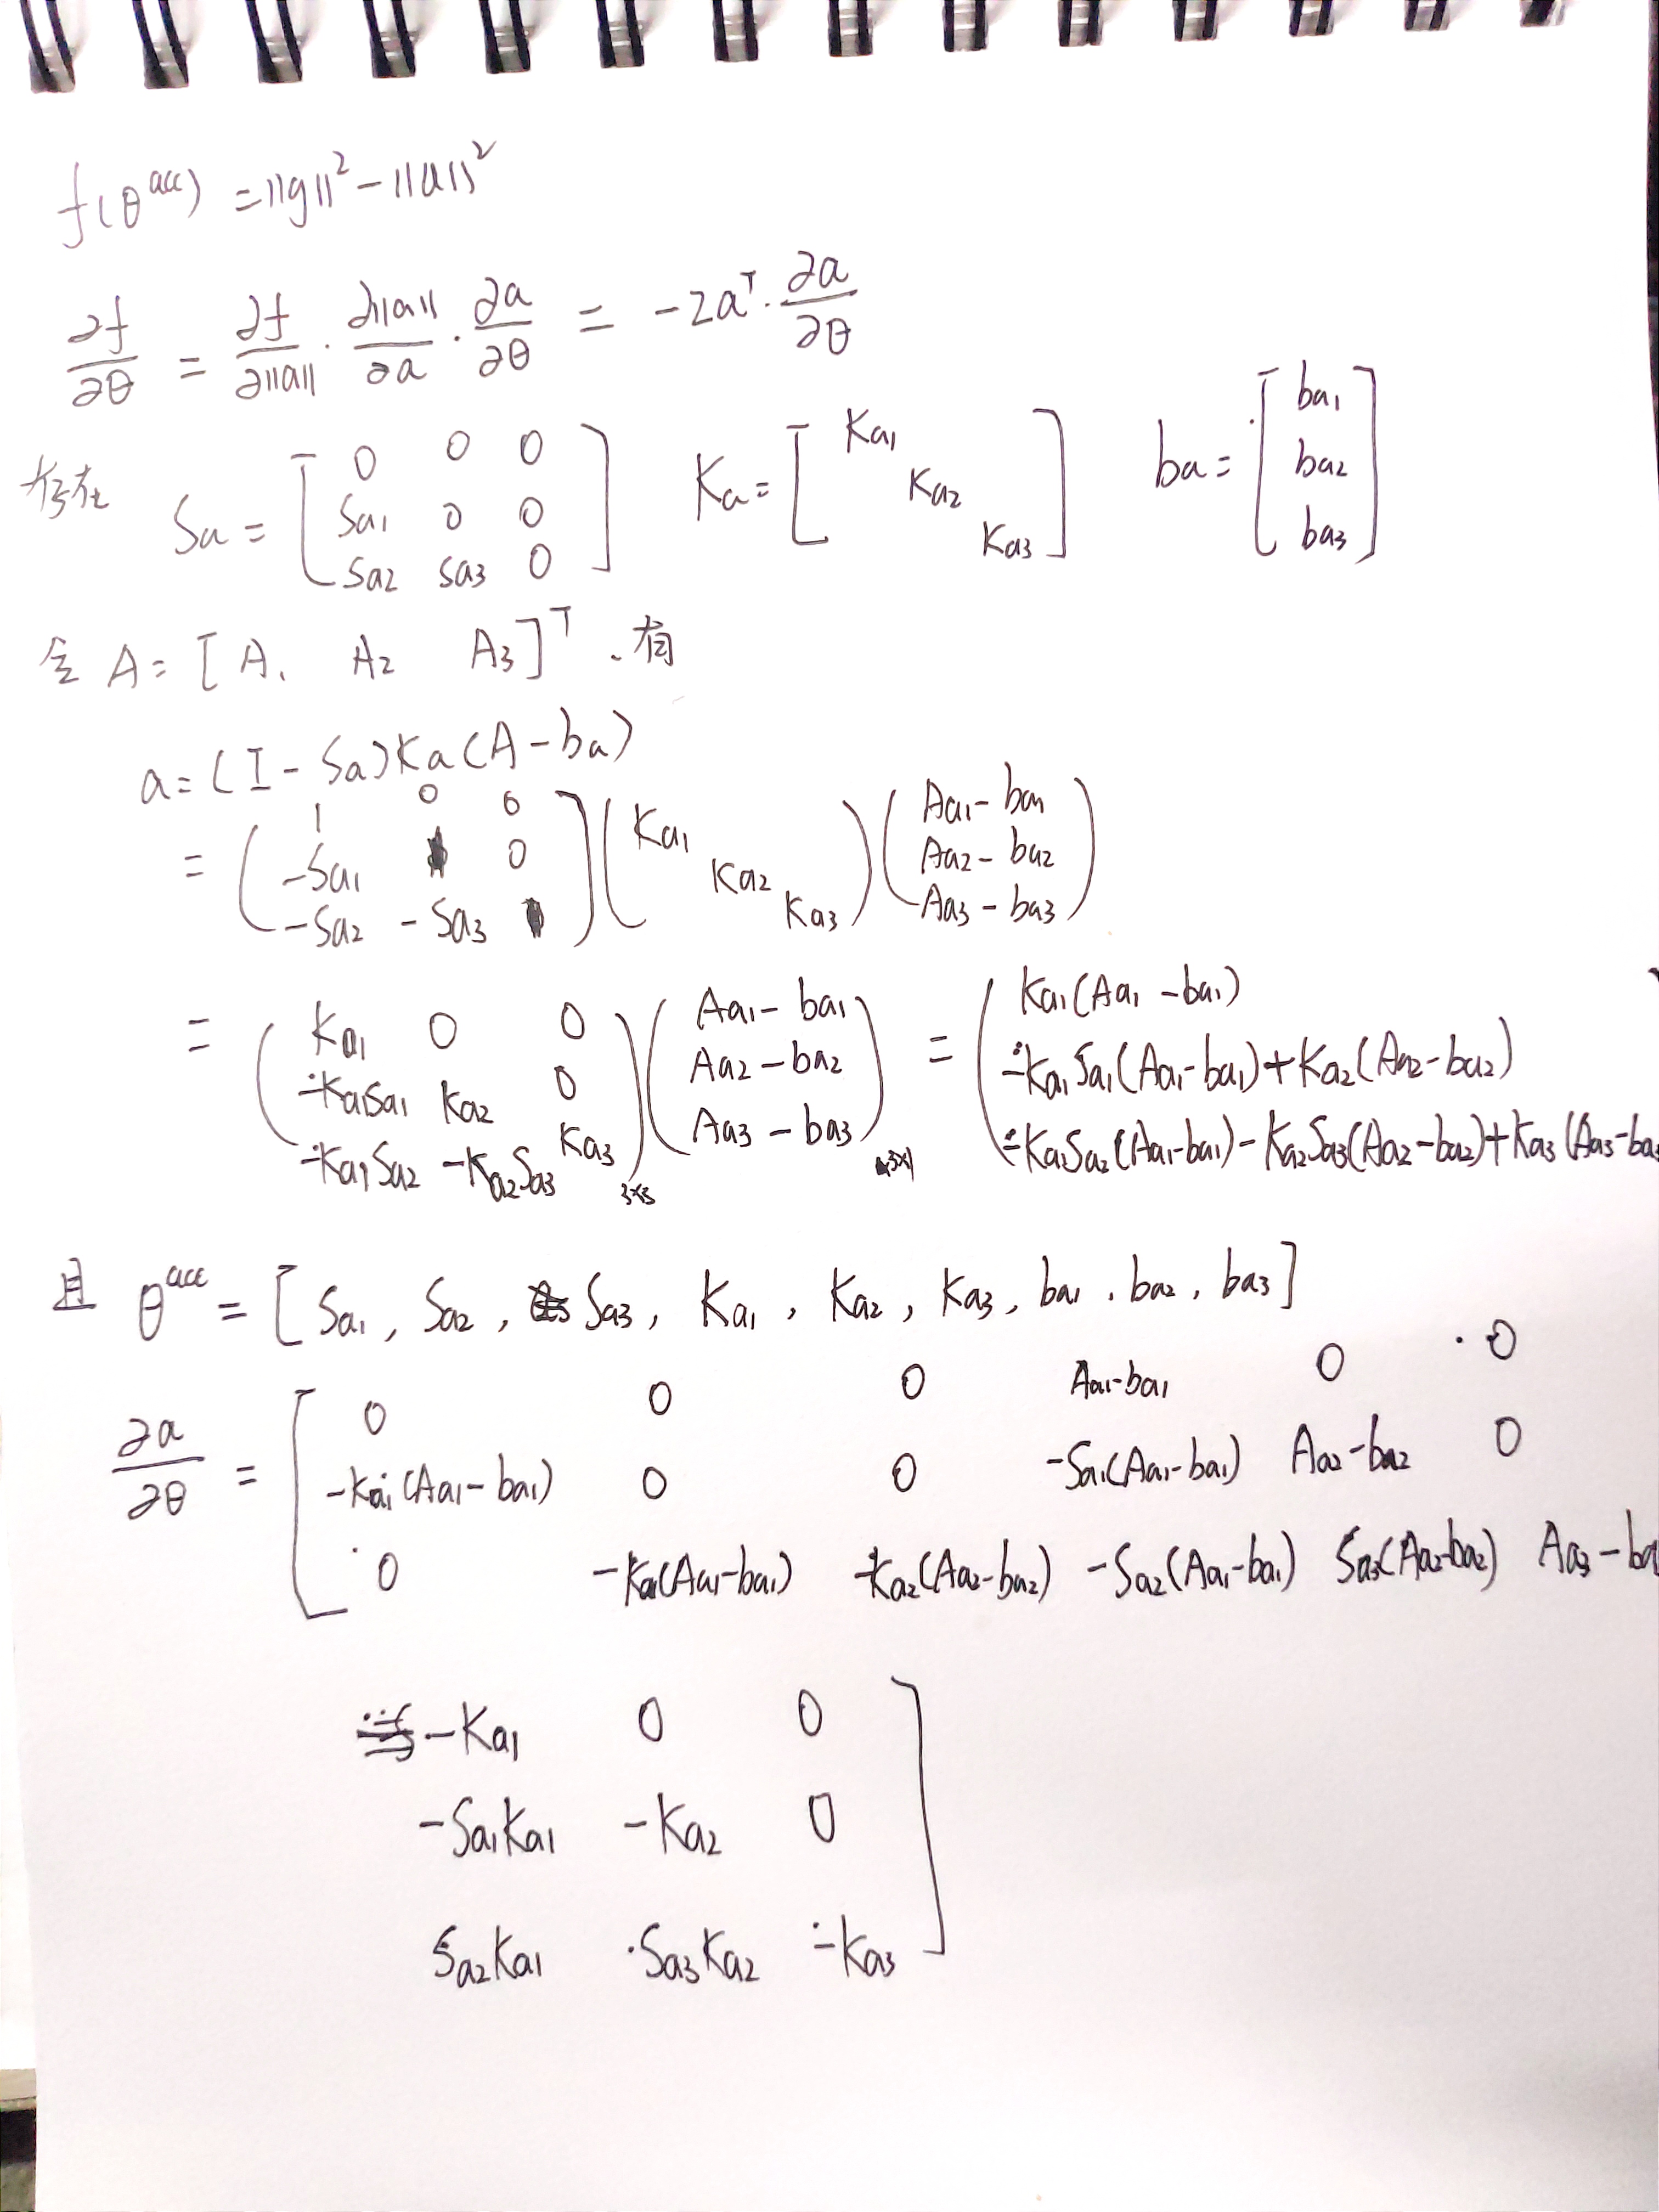 f(θ^acc) = ||g||² - ||a||²
∂f/∂θ = ∂f/∂||a|| · ∂||a||/∂a · ∂a/∂θ = -2a^T · ∂a/∂θ
Sa = [ 0 0 0 ; Sa1 0 0 ; Sa2 Sa3 0 ] Ka = [ Ka1 Ka2 Ka3 ] ba = [ ba1 ; ba2 ; ba3 ]
令 A = [ A1 A2 A3 ]^T . 有
a = (I - Sa)Ka(A - ba)
= ( 1 0 0 ; -Sa1 1 0 ; -Sa2 -Sa3 1 ) ( Ka1 Ka2 Ka3 ) ( Aa1 - ba1 ; Aa2 - ba2 ; Aa3 - ba3 )
= ( Ka1 0 0 ; -Ka1Sa1 Ka2 0 ; -Ka1Sa2 -Ka2Sa3 Ka3 )3×3 ( Aa1 - ba1 ; Aa2 - ba2 ; Aa3 - ba3 )3×1 = ( Ka1(Aa1 - ba1) ; -Ka1Sa1(Aa1 - ba1) + Ka2(Aa2 - ba2) ; -Ka1Sa2(Aa1 - ba1) - Ka2Sa3(Aa2 - ba2) + Ka3(Aa3 - ba3
且 θ^acc = [ Sa1, Sa2, Sa3, Ka1, Ka2, Ka3, ba1, ba2, ba3 ]
∂a/∂θ = [ 0 0 0 Aa1 - ba1 0 0
-Ka1(Aa1 - ba1) 0 0 -Sa1(Aa1 - ba1) Aa2 - ba2 0
0 -Ka1(Aa1 - ba1) -Ka2(Aa2 - ba2) -Sa2(Aa1 - ba1) Sa3(Aa2 - ba2) Aa3 - ba
-Ka1 0 0
-Sa1Ka1 -Ka2 0
Sa2Ka1 Sa3Ka2 -Ka3 ]